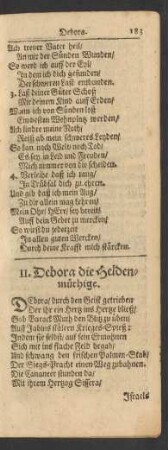 Debora. 183
Ach treuer Vater heil/
An mir der Sünden Wunden/
So werd ich auff der Eyl/
In dem ich dich gefunden/
Der schweren Last entbunden.
3. Laß dieser Güter Schoß
Mit deinem Kind auff Erden/
Wann ich von Sünden loß
Ein besten Wohnplatz werden/
Ach lindre meine Noth/
Reiß ab mein schweres Leyden/
So kan noch Weh noch Tod/
Es sey in Leid und Freuden/
Mich nimmer von dir scheiden.
4. Verleihe daß ich mag/
In Trübsal dich zu ehren.
Und gib daß ich mein Tag/
Zu dir allein mag kehren/
Mein Ohr/ HErr/ sey bereit
Auff dein Gebot zu mercken/
So wirst du jederzeit
In allen guten Wercken/
Durch deine Krafft mich stärcken.
II. Debora die Helden-
müthige.
Debora/ durch den Geist getrieben
Der ihr ein Hertz ins Hertze bließ/
Gab Barack Muth den Blitz zu üben/
Auf Jabins stältern Krieges-Spieß:
Indem sie selbst/ auf sein Ermahnen
Sich mit ins flache Feld begab/
Und schwang den frischen Palmen-Stab/
Der Siegs-Pracht einen Weg zubahnen.
Die Cananeer stunden da/
Mit ihrem Hertzog Sissera/
Israels